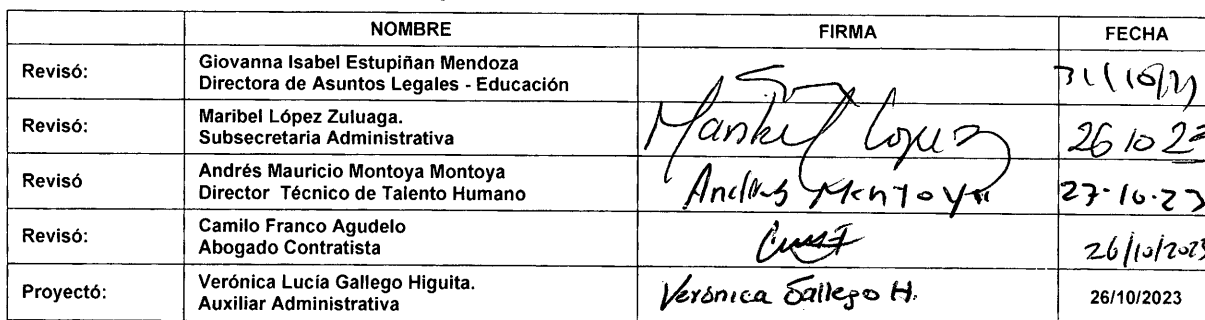 NOMBRE FIRMA FECHA
Revisó: Giovanna Isabel Estupiñan Mendoza
Directora de Asuntos Legales - Educación
Revisó: Maribel López Zuluaga.
Subsecretaria Administrativa Maribel López 26 10 23
Revisó Andrés Mauricio Montoya Montoya
Director Técnico de Talento Humano Andres Montoya 27-10-23
Revisó: Camilo Franco Agudelo
Abogado Contratista 26/10/2023
Proyectó: Verónica Lucía Gallego Higuita.
Auxiliar Administrativa Verónica Gallego H. 26/10/2023